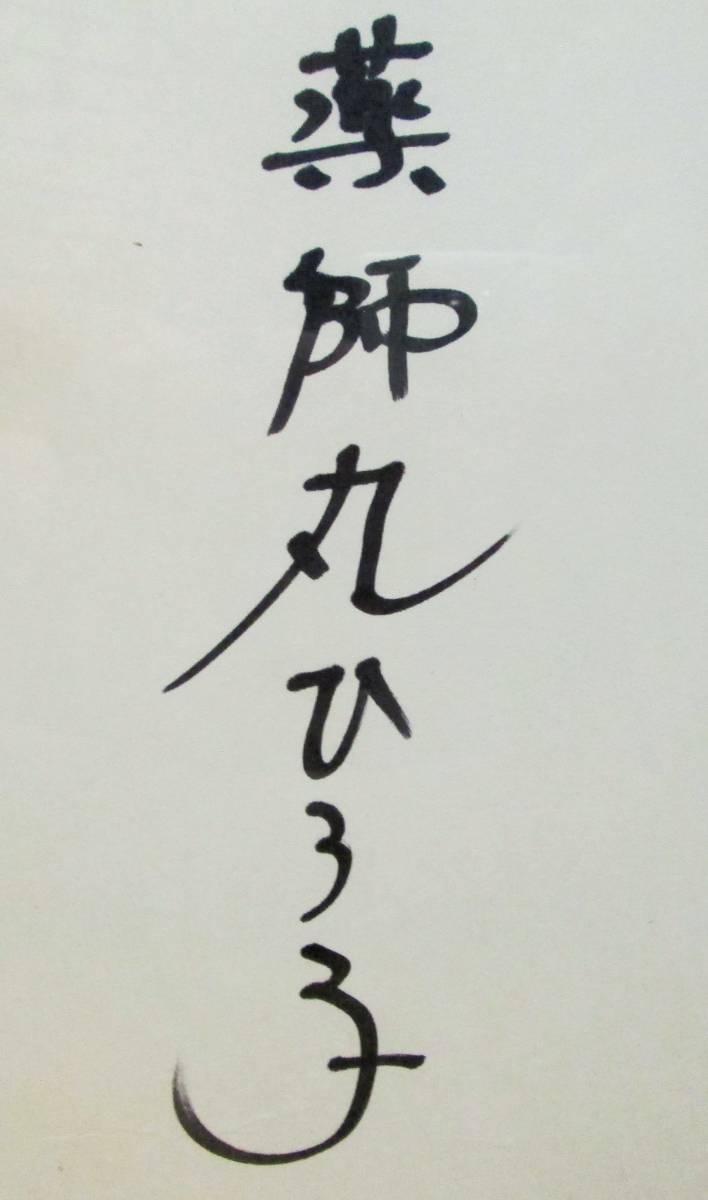 薬師丸ひろ子